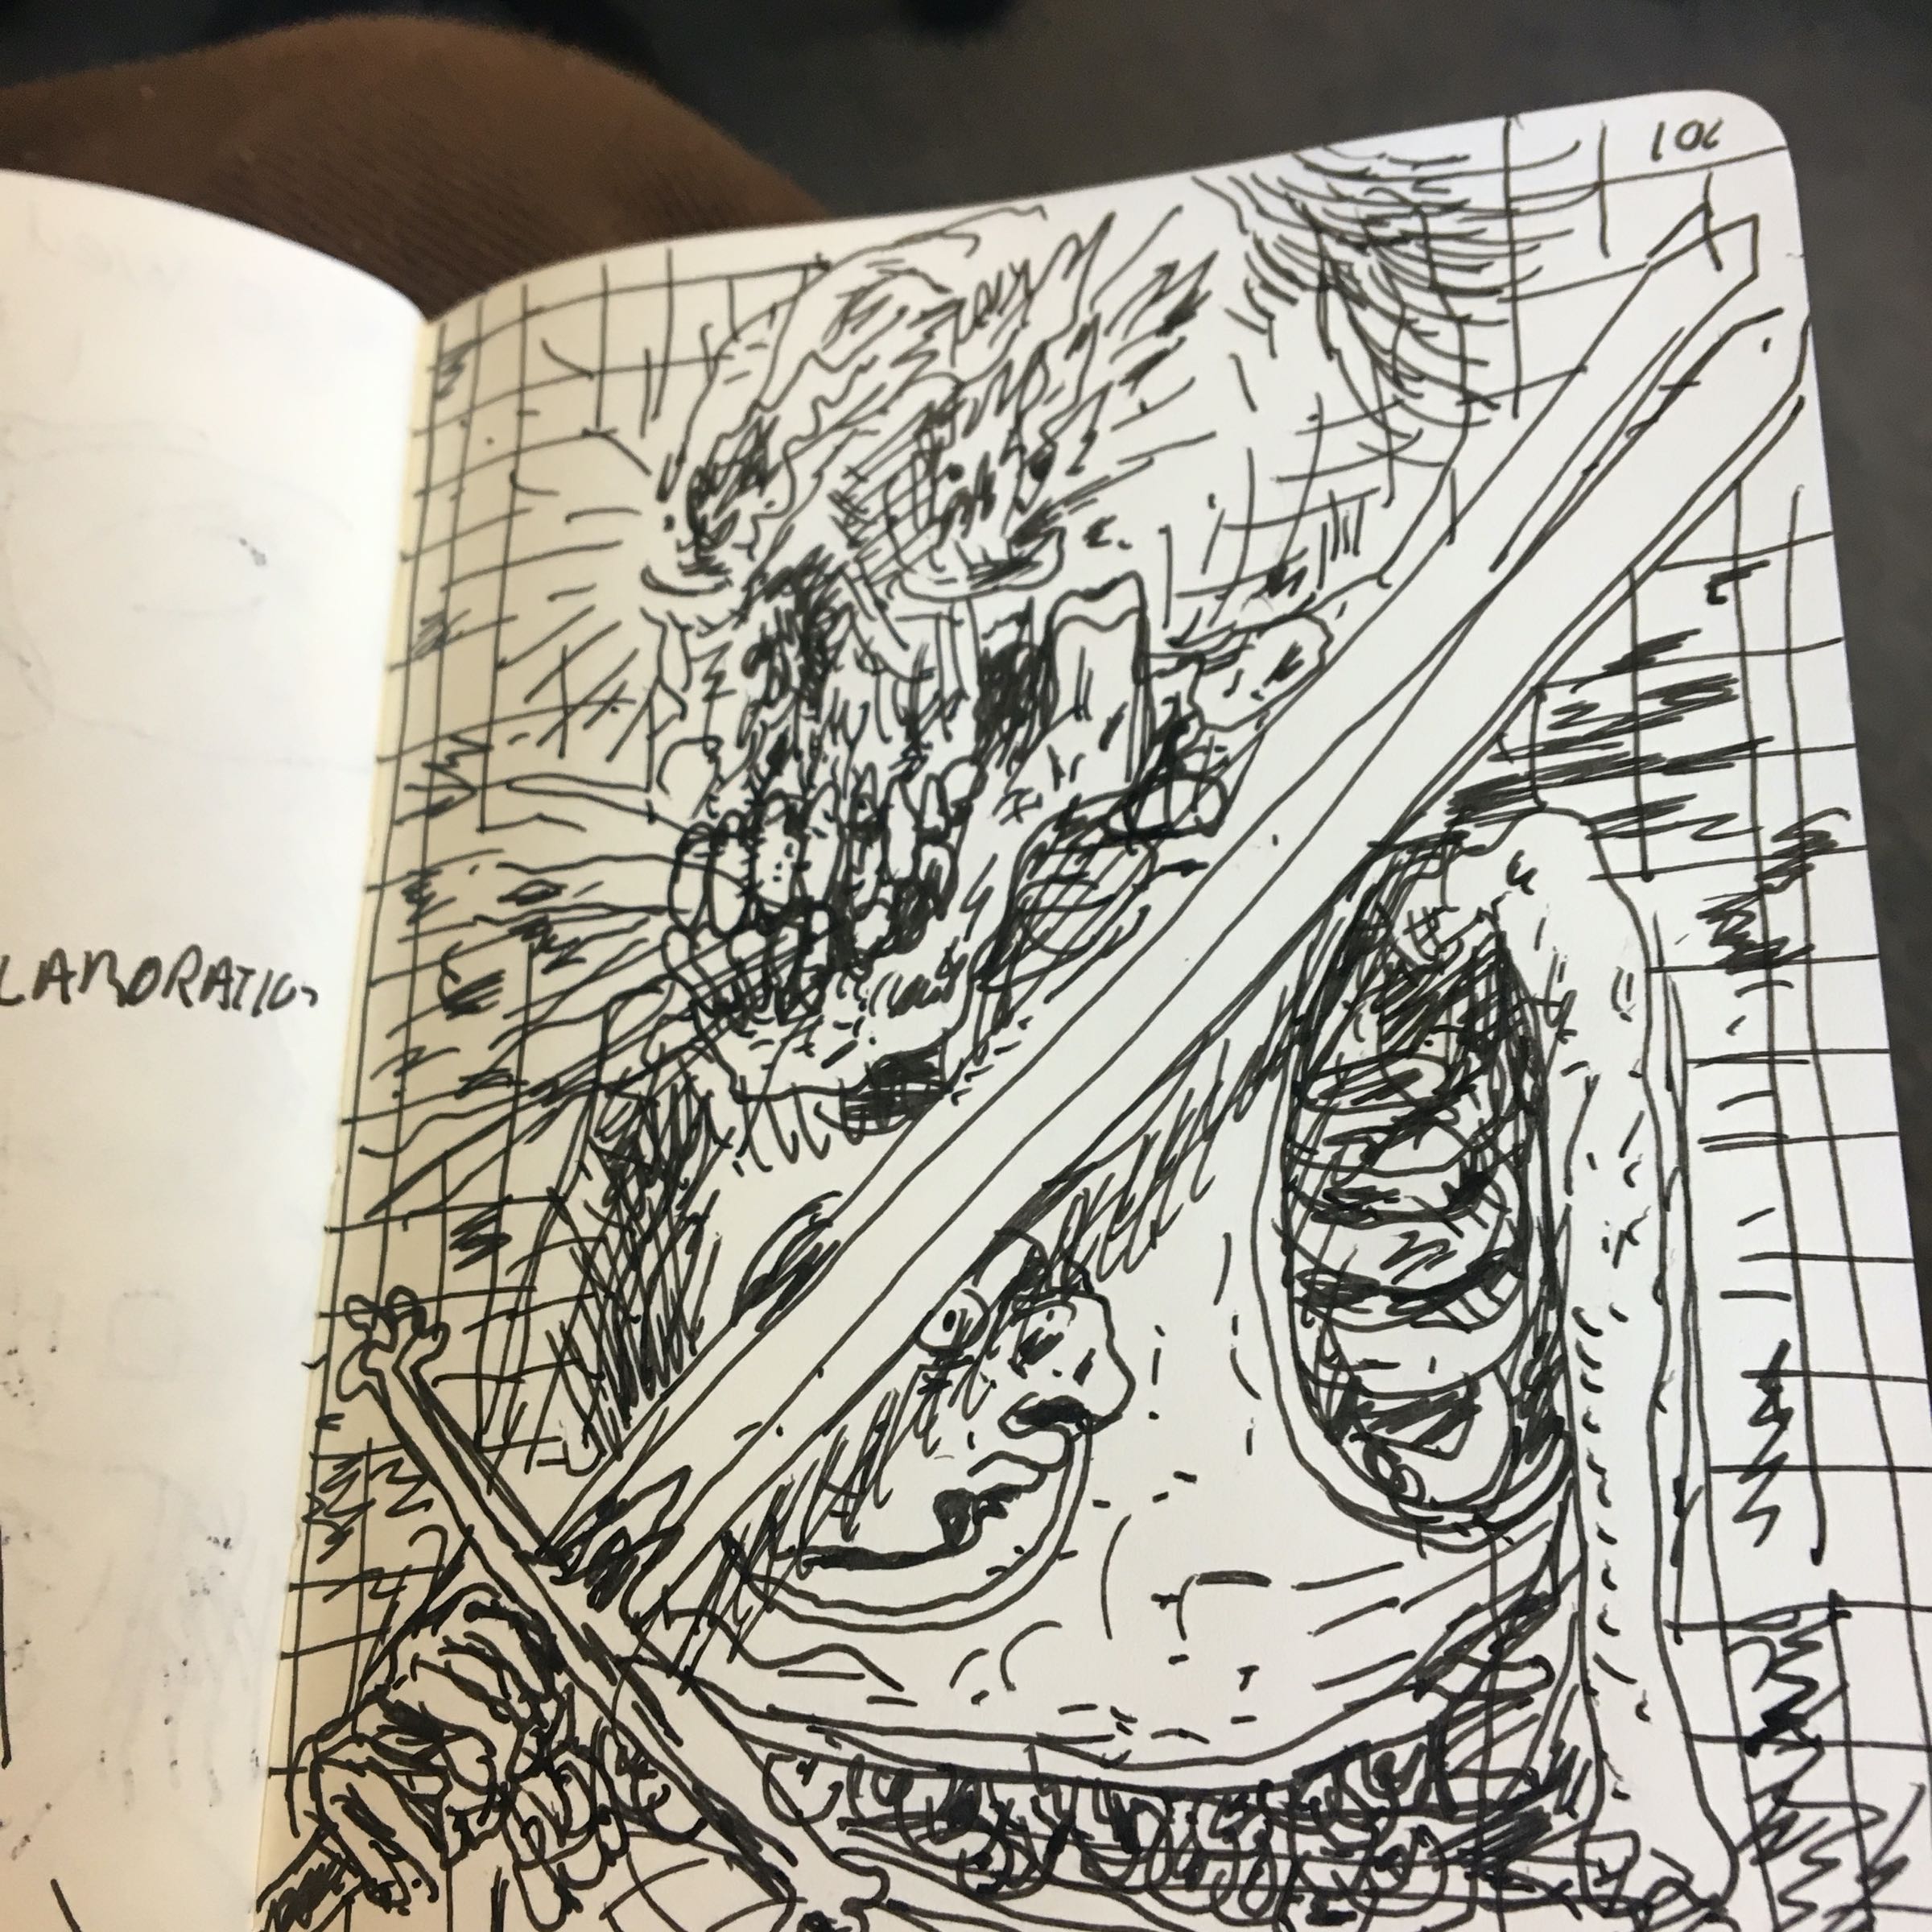 LABORATION
101